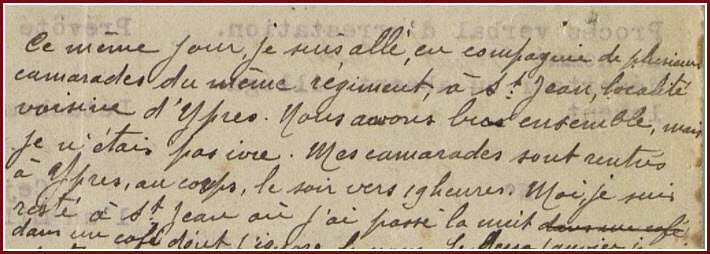 Ce même jour, je suis allé, en compagnie de plusieurs
camarades du même régiment, à St Jean, localité
voisine d'Ypres. Nous avons bu ensemble, mais
je n'étais pas ivre. Mes camarades sont rentrés
à Ypres, au corps, le soir vers 19 heures. Moi, je suis
resté à St Jean où j'ai passé la nuit dans un café
dans un café dont j'ignore le nom. Le